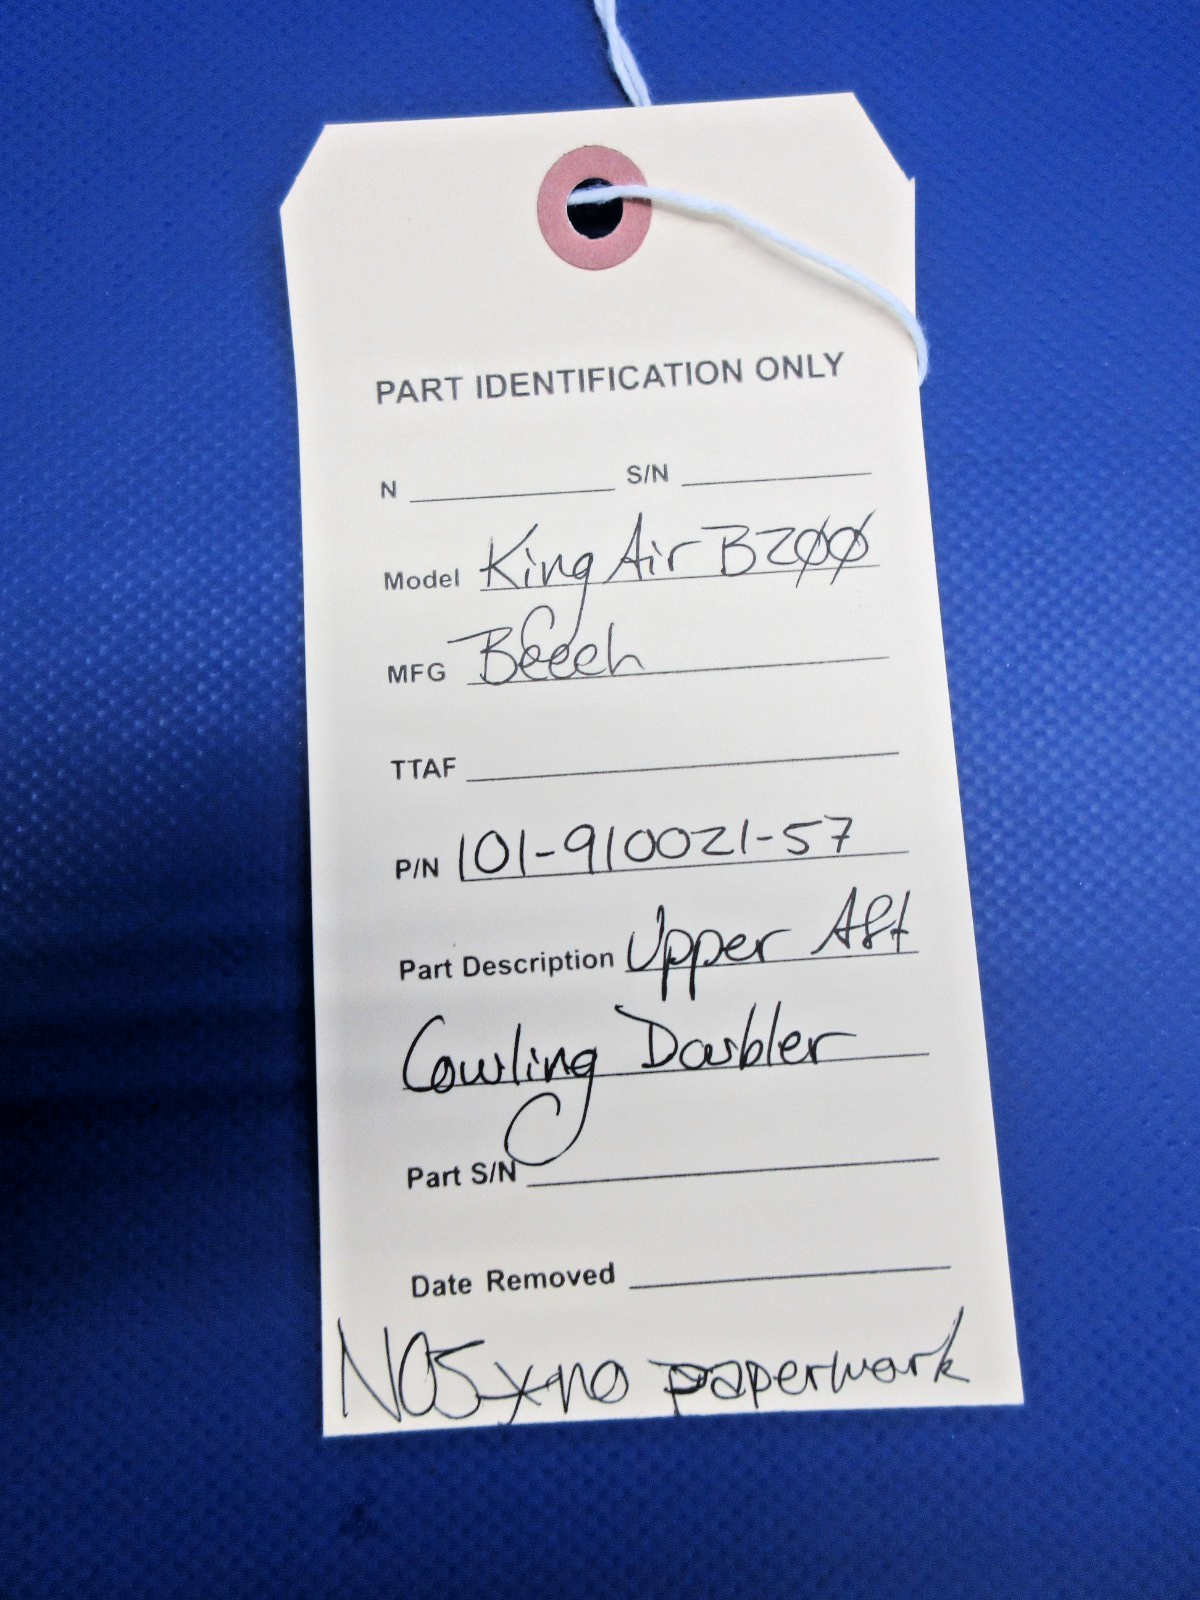 PART IDENTIFICATION ONLY
N S/N
Model King Air B200
MFG Beech
TTAF
P/N 101-910021-57
Part Description Upper Aft
Cowling Doubler
Part S/N
Date Removed
NOS no paperwork